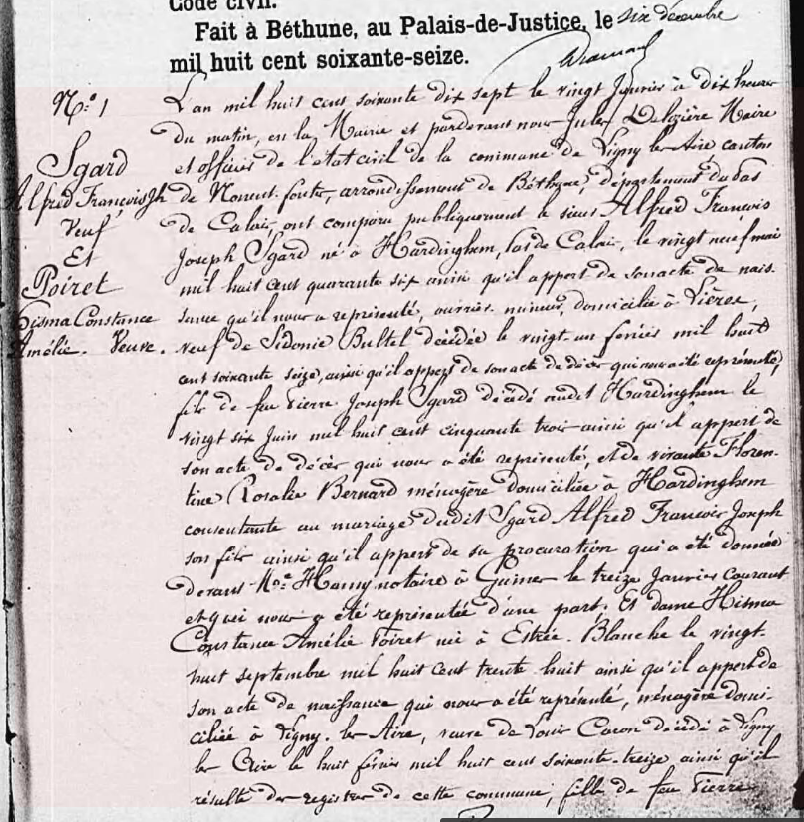 Code civil.
Fait à Béthune, au Palais-de-Justice, le six décembre
mil huit cent soixante-seize.
N.º 1
Sgard
Alfred François Jh
Veuf
Et
Poiret
Hisma Constance
Amélie. Veuve.
L'an mil huit cent soixante dix sept le vingt Janvier à dix heures
du matin, en la Mairie et pardevant nous Jules Delozière Maire
et officier de l'état civil de la commune de Ligny lez Aire canton
de Norrent-fontes, arrondissement de Béthune, département du Pas
de Calais, ont comparu publiquement le sieur Alfred François
Joseph Sgard né à Hardinghem, Pas de Calais, le vingt neuf mai
mil huit cent quarante six ainsi qu'il appert de son acte de nais
sance qu'il nous a représenté, ouvrier mineur, domicilié à Lières,
veuf de Sidonie Bultel décédée le vingt-un février mil huit
cent soixante seize, ainsi qu'il appert de son acte de décès qui nous a été représenté,
fils de feu Pierre Joseph Sgard décédé audit Hardinghem le
vingt six Juin mil huit cent cinquante trois ainsi qu'il appert de
son acte de décès qui nous a été représenté, et de vivante Floren-
tine Rosalie Bernard ménagère domiciliée à Hardinghem
consentante au mariage dudit Sgard Alfred François Joseph
son fils ainsi qu'il appert de sa procuration qui a été donnée
devant Me Hamy notaire à Guines le treize Janvier courant
et qui nous a été représentée d'une part. Et dame Hisma
Constance Amélie Poiret née à Estrée-Blanche le vingt-
huit septembre mil huit cent trente huit ainsi qu'il appert de
son acte de naissance qui nous a été représenté, ménagère domi-
ciliée à Ligny-lez-Aire, veuve de Louis Caron décédé à Ligny
lez Aire le huit février mil huit cent soixante-treize ainsi qu'il
résulte des registres de cette commune, fille de feu Pierre